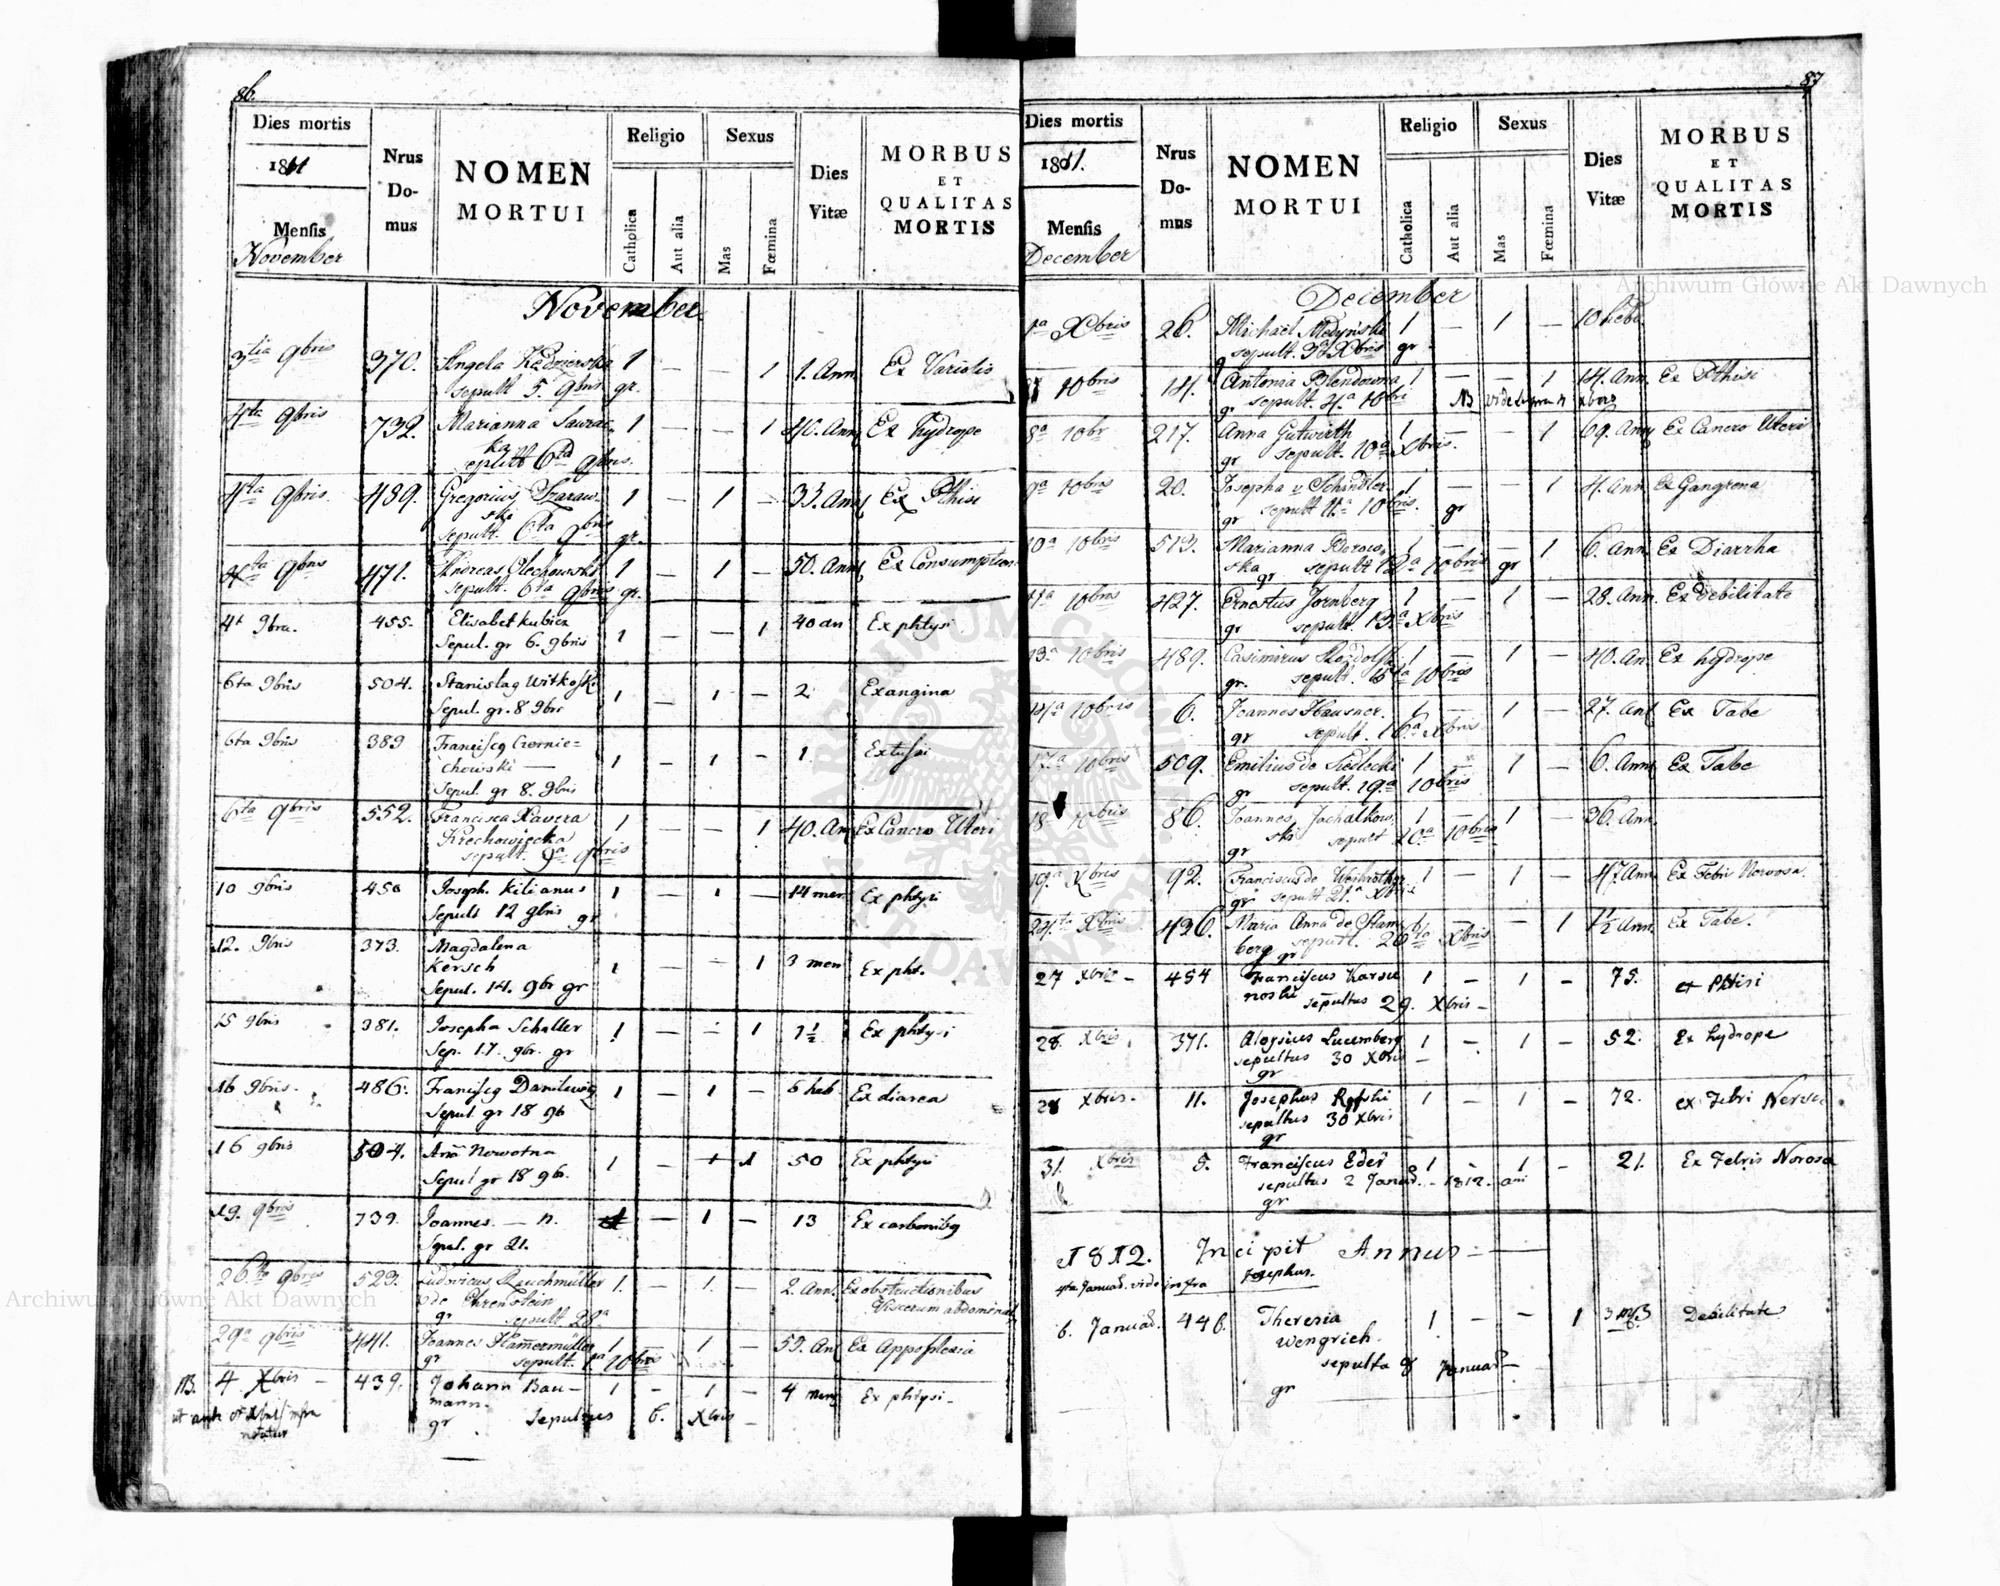 86.
Dies mortis
1811
Mensis
November
Nrus
Do-
mus
NOMEN
MORTUI
Religio
Catholica
Aut alia
Sexus
Mas
Fœmina
Dies
Vitæ
MORBUS
ET
QUALITAS
MORTIS
November
3tia 9bris 370. Angela Kadmierska 1 — — 1 1. Ann. Ex Variolis
sepult 5. 9bris gr.
4ta 9bris 732. Marianna 1 — — 1 40. Ann Ex hydrope
ka
sepult 6ta 9bris.
4ta 9bris 489. Gregorius Szaraw- 1 — 1 — 33. Ann Ex Pthisi
ski
sepult. 6ta 9bris gr.
4ta 9bris 471. Andreas Olechowski 1 — 1 — 50. Ann Ex Consumption
sepult. 6ta 9bris gr.
4t 9bris. 455. Elisabet Kubicz 1 — — 1 40 an Ex phtysi
Sepul. gr 6. 9bris
6ta 9bris 504. Stanislaus Witkoski 1 1 — 2 Ex angina
Sepul. gr. 8 9br
6ta 9bris 389 Franciscus Czernie=
chowski — 1 - 1 - 1. Ex tussi
Sepul. gr 8. 9bris
6ta 9bris 552. Francisca Xavera 1 — — 1 40. An Ex Cancro Uteri
Krechowięcka
sepult. 9a 9bris
10 9bris 450 Joseph. Kilianus 1 - 1 - 14 men Ex phtysi
Sepult 12 9bris gr
12. 9bris 373. Magdalena
Kersch 1 - - 1 3 men Ex pht.
Sepul. 14. 9br gr
15 9bris 381. Josepha Schaller 1 — - 1 1½ Ex phtysi
Sep. 17. 9br. gr
16 9bris. 486. Franciscus Danilewicz 1 - 1 - 6 heb Ex diarea
Sepul gr 18 9b
16 9bris 504. Anna Nowotna 1 - 1 50 Ex phtysi
Sepul gr 18 9b.
19. 9bris 739. Joannes — n. — 1 — 13 Ex carbonibus
Sepul. gr 21.
26ta 9bris 523. Ludovicus Rauchmüller 1. — 1. — 2. Ann. Ex obstructionibus
de Ehrenstein Viscerum abdominal
gr sepult 28a
29a 9bris 441. Joannes Hamermüller 1 — 1 — 59. An Ex Appoplexia
gr sepult. 1ma 10bris
NB. 4 Xbris - 439. Johann Bau- 1 - 1 - 4 mens Ex phtysi-
mann-
ut infra
notatur
gr Sepultus 6. Xbris -
87
Dies mortis
1811.
Mensis
December
Nrus
Do-
mus
NOMEN
MORTUI
Religio
Catholica
Aut alia
Sexus
Mas
Fœmina
Dies
Vitæ
MORBUS
ET
QUALITAS
MORTIS
December
1a Xbris 26. Michael Medyński 1 — 1 — 10 hebd.
sepult. 3 Xbris gr
10bris 14. Antonia Blendowna 1 — — 1 14. Ann. Ex Pthisi
gr sepult. 4a 10bris NB vide supra 4 xbris
8a 10br 217. Anna Gutwirth 1 — — 1 69. Ann Ex Cancro Uteri
gr sepult. 10a Xbris.
9a 10bris 20. Josepha v Schindler. 1 — — 1 4. Ann Ex Gangrena
gr sepult 11a 10bris. gr
10a 10bris 513. Marianna Borow- 1 — — 1 6. Ann. Ex Diarrha
ska gr sepult 12a 10bris gr
11a 10bris 427. Ernestus Jornberg 1 — 1 — 29. Ann. Ex debilitate
gr sepult. 13a Xbris
13a 10bris 489. Casimirus 1 — 1 — 40. An Ex hydrope
gr. sepult. 15ta 10bris
14a 10bris 6. Joannes Hausner. 1 — 1 — 27. An Ex Tabe
gr sepult. 16a Xbris
17a 10bris 509. Emilius de Siedlecki 1 1 — 6. Ann Ex Tabe
gr sepult. 19a 10bris
18 10bris 86. Joannes Jachalkow- 1 — 1 — 36. Ann.
ski sepult 20a 10bris
gr
19a Xbris 92. Franciscus de 1 — 1 — 47. Ann Ex Febri Nervosa
gr sepult 21. Xbris
24ta Xbris 426. Maria Anna de Stam- 1 — - 1 1½ Ann. Ex Tabe.
berg sepult. 26ta Xbris
gr
27 Xbris - 454 Franciscus Karsz- 1 - 1 - 75. ex Phtisi
noski sepultus 29. Xbris -
28. Xbris. 371. Aloysius Lucemberg 1 - 1 - 52. Ex hydrope
sepultus 30 Xbris -
gr
28 Xbris. 11. Josephus 1 - 1 - 72. ex Febri Nervosa
sepultus 30 Xbris
gr
31. Xbris 5. Franciscus Eder 1 - 1 - 21. Ex Febris Norosa
sepultus 2 Januar. - 1812. ani
gr
1812. Incipit Annus - —
4ta Januar. vide infra Josephus.
6. Januar. 446. Theresia 1 - - 1 Debilitate
Wengrich.
sepulta 8 Januar -
gr
Archiwum Główne Akt Dawnych
Archiwum Główne Akt Dawnych
ARCHIWUM GŁÓWNE AKT DAWNYCH